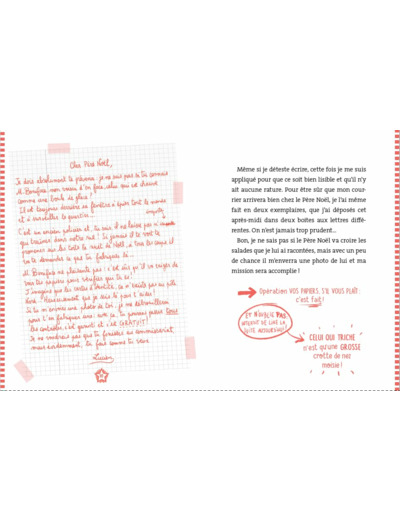 Cher Père Noël,
Je dois absolument te prévenir, je ne sais pas si tu connais
M. Bonifure, mon voisin d'en face, celui qui est chauve
comme une boule de glace !
Il est toujours derrière sa fenêtre à épier tout le monde
et à surveiller le quartier...
C'est un ancien policier et, tu sais, il ne laisse pas
qui traînent dans notre rue ! Si jamais il te voit te
promener sur les toits la nuit de Noël, à tous les coups il
va te demander ce que tu fabriques là...
M. Bonifure ne plaisante pas : c'est sûr qu'il va exiger de
voir tes papiers pour vérifier qui tu es !
J'imagine que les cartes d'identité, ça n'existe pas au pôle
Nord. Heureusement que je suis là pour t'aider !
Si tu m'envoies une photo de toi, je me débrouillerai
pour t'en fabriquer une. Avec ça, tu pourras passer tous
les contrôles, c'est garanti et c'est GRATUIT !
Je ne voudrais pas que tu finisses au commissariat,
mais évidemment, tu fais comme tu veux.
Lucien
Même si je déteste écrire, cette fois je me suis
appliqué pour que ce soit bien lisible et qu'il n'y
ait aucune rature. Pour être sûr que mon cour-
rier arrivera bien chez le Père Noël, je l'ai même
fait en deux exemplaires, que j'ai déposés cet
après-midi dans deux boîtes aux lettres différ-
entes. On n'est jamais trop prudent...
Bon, je ne sais pas si le Père Noël va croire les
salades que je lui ai racontées, mais avec un peu
de chance il m'enverra une photo de lui et ma
mission sera accomplie !
Opération VOS PAPIERS, S'IL VOUS PLAÎT :
c'est fait !
ET N'OUBLIE PAS
INTERDIT DE LIRE LA
SUITE AUJOURD'HUI !
CELUI QUI TRICHE
n'est qu'une GROSSE
crotte de nez
moisie !